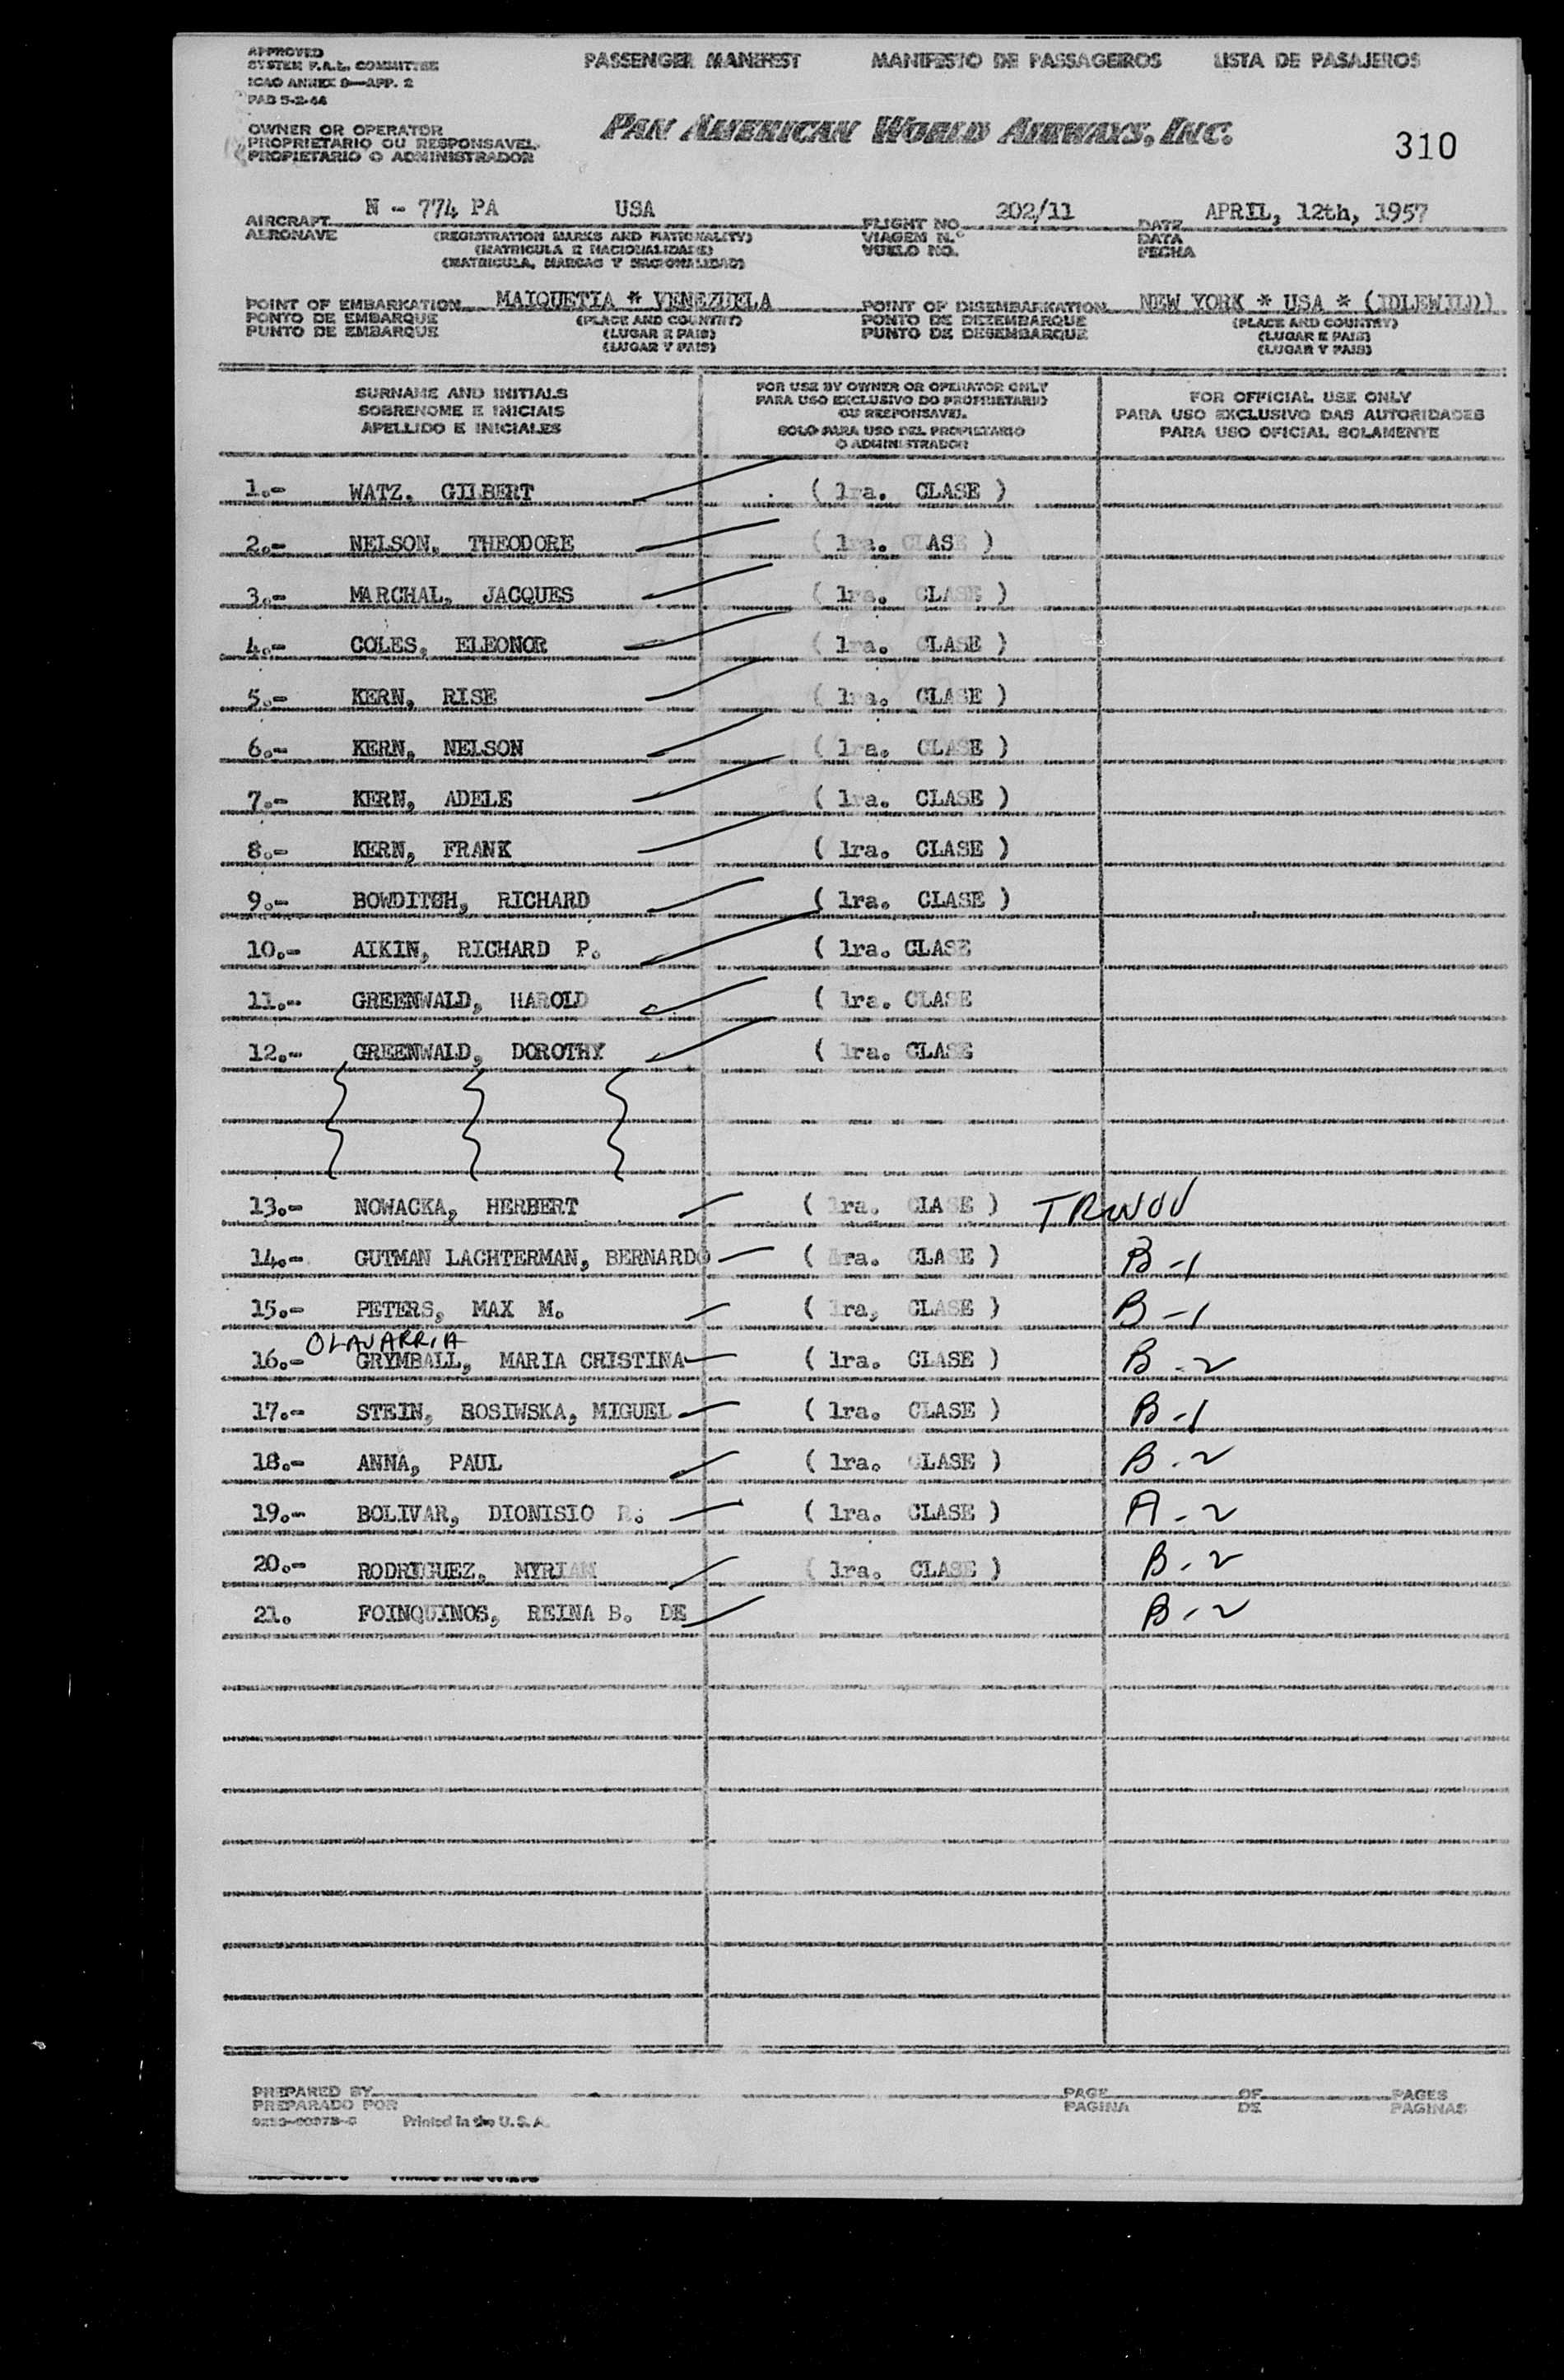 APPROVED
SYSTEM F.A.L. COMMITTEE
ICAO ANNEX 9—APP. 2
PAB 5-2-44
PASSENGER MANIFEST MANIFESTO DE PASSAGEIROS LISTA DE PASAJEROS
OWNER OR OPERATOR
PROPRIETARIO OU RESPONSAVEL
PROPIETARIO O ADMINISTRADOR
PAN AMERICAN WORLD AIRWAYS, INC.
310
AIRCRAFT N - 774 PA USA FLIGHT NO. 202/11 DATE APRIL, 12th, 1957
AERONAVE (REGISTRATION MARKS AND NATIONALITY) VIAGEM N.º DATA
(MATRICULA E NACIONALIDADE) VUELO NO. FECHA
(MATRICULA, MARCAS Y NACIONALIDAD)
POINT OF EMBARKATION MAIQUETIA * VENEZUELA POINT OF DISEMBARKATION NEW YORK * USA * (IDLEWILD)
PONTO DE EMBARQUE (PLACE AND COUNTRY) PONTO DE DEZEMBARQUE (PLACE AND COUNTRY)
PUNTO DE EMBARQUE (LUGAR E PAIS) PUNTO DE DESEMBARQUE (LUGAR E PAIS)
(LUGAR Y PAIS) (LUGAR Y PAIS)
SURNAME AND INITIALS
SOBRENOME E INICIAIS
APELLIDO E INICIALES
FOR USE BY OWNER OR OPERATOR ONLY
PARA USO EXCLUSIVO DO PROPRIETARIO
OU RESPONSAVEL
SOLO PARA USO DEL PROPIETARIO
O ADMINISTRADOR
FOR OFFICIAL USE ONLY
PARA USO EXCLUSIVO DAS AUTORIDADES
PARA USO OFICIAL SOLAMENTE
1.- WATZ. GILBERT ( 1ra. CLASE )
2.- NELSON, THEODORE ( 1ra. CLASE )
3.- MARCHAL, JACQUES ( 1ra. CLASE )
4.- COLES, ELEONOR ( 1ra. CLASE )
5.- KERN, RISE ( 1ra. CLASE )
6.- KERN, NELSON ( 1ra. CLASE )
7.- KERN, ADELE ( 1ra. CLASE )
8.- KERN, FRANK ( 1ra. CLASE )
9.- BOWDITCH, RICHARD ( 1ra. CLASE )
10.- AIKIN, RICHARD P. ( 1ra. CLASE
11.- GREENWALD, HAROLD ( 1ra. CLASE
12.- GREENWALD, DOROTHY ( 1ra. CLASE
13.- NOWACKA, HERBERT ( 1ra. CLASE ) TRWOV
14.- GUTMAN LACHTERMAN, BERNARDO ( 1ra. CLASE ) B-1
15.- PETERS, MAX M. ( 1ra, CLASE ) B-1
OLAVARRIA
16.- GRYMBALL, MARIA CRISTINA ( 1ra. CLASE ) B-2
17.- STEIN, ROSIWSKA, MIGUEL ( 1ra. CLASE ) B-1
18.- ANNA, PAUL ( 1ra. CLASE ) B-2
19.- BOLIVAR, DIONISIO R. ( 1ra. CLASE ) A-2
20.- RODRIGUEZ, MYRIAM ( 1ra. CLASE ) B-2
21. FOINQUINOS, REINA B. DE B-2
PREPARED BY PAGE OF PAGES
PREPARADO POR PAGINA DE PAGINAS
Printed in the U.S.A.